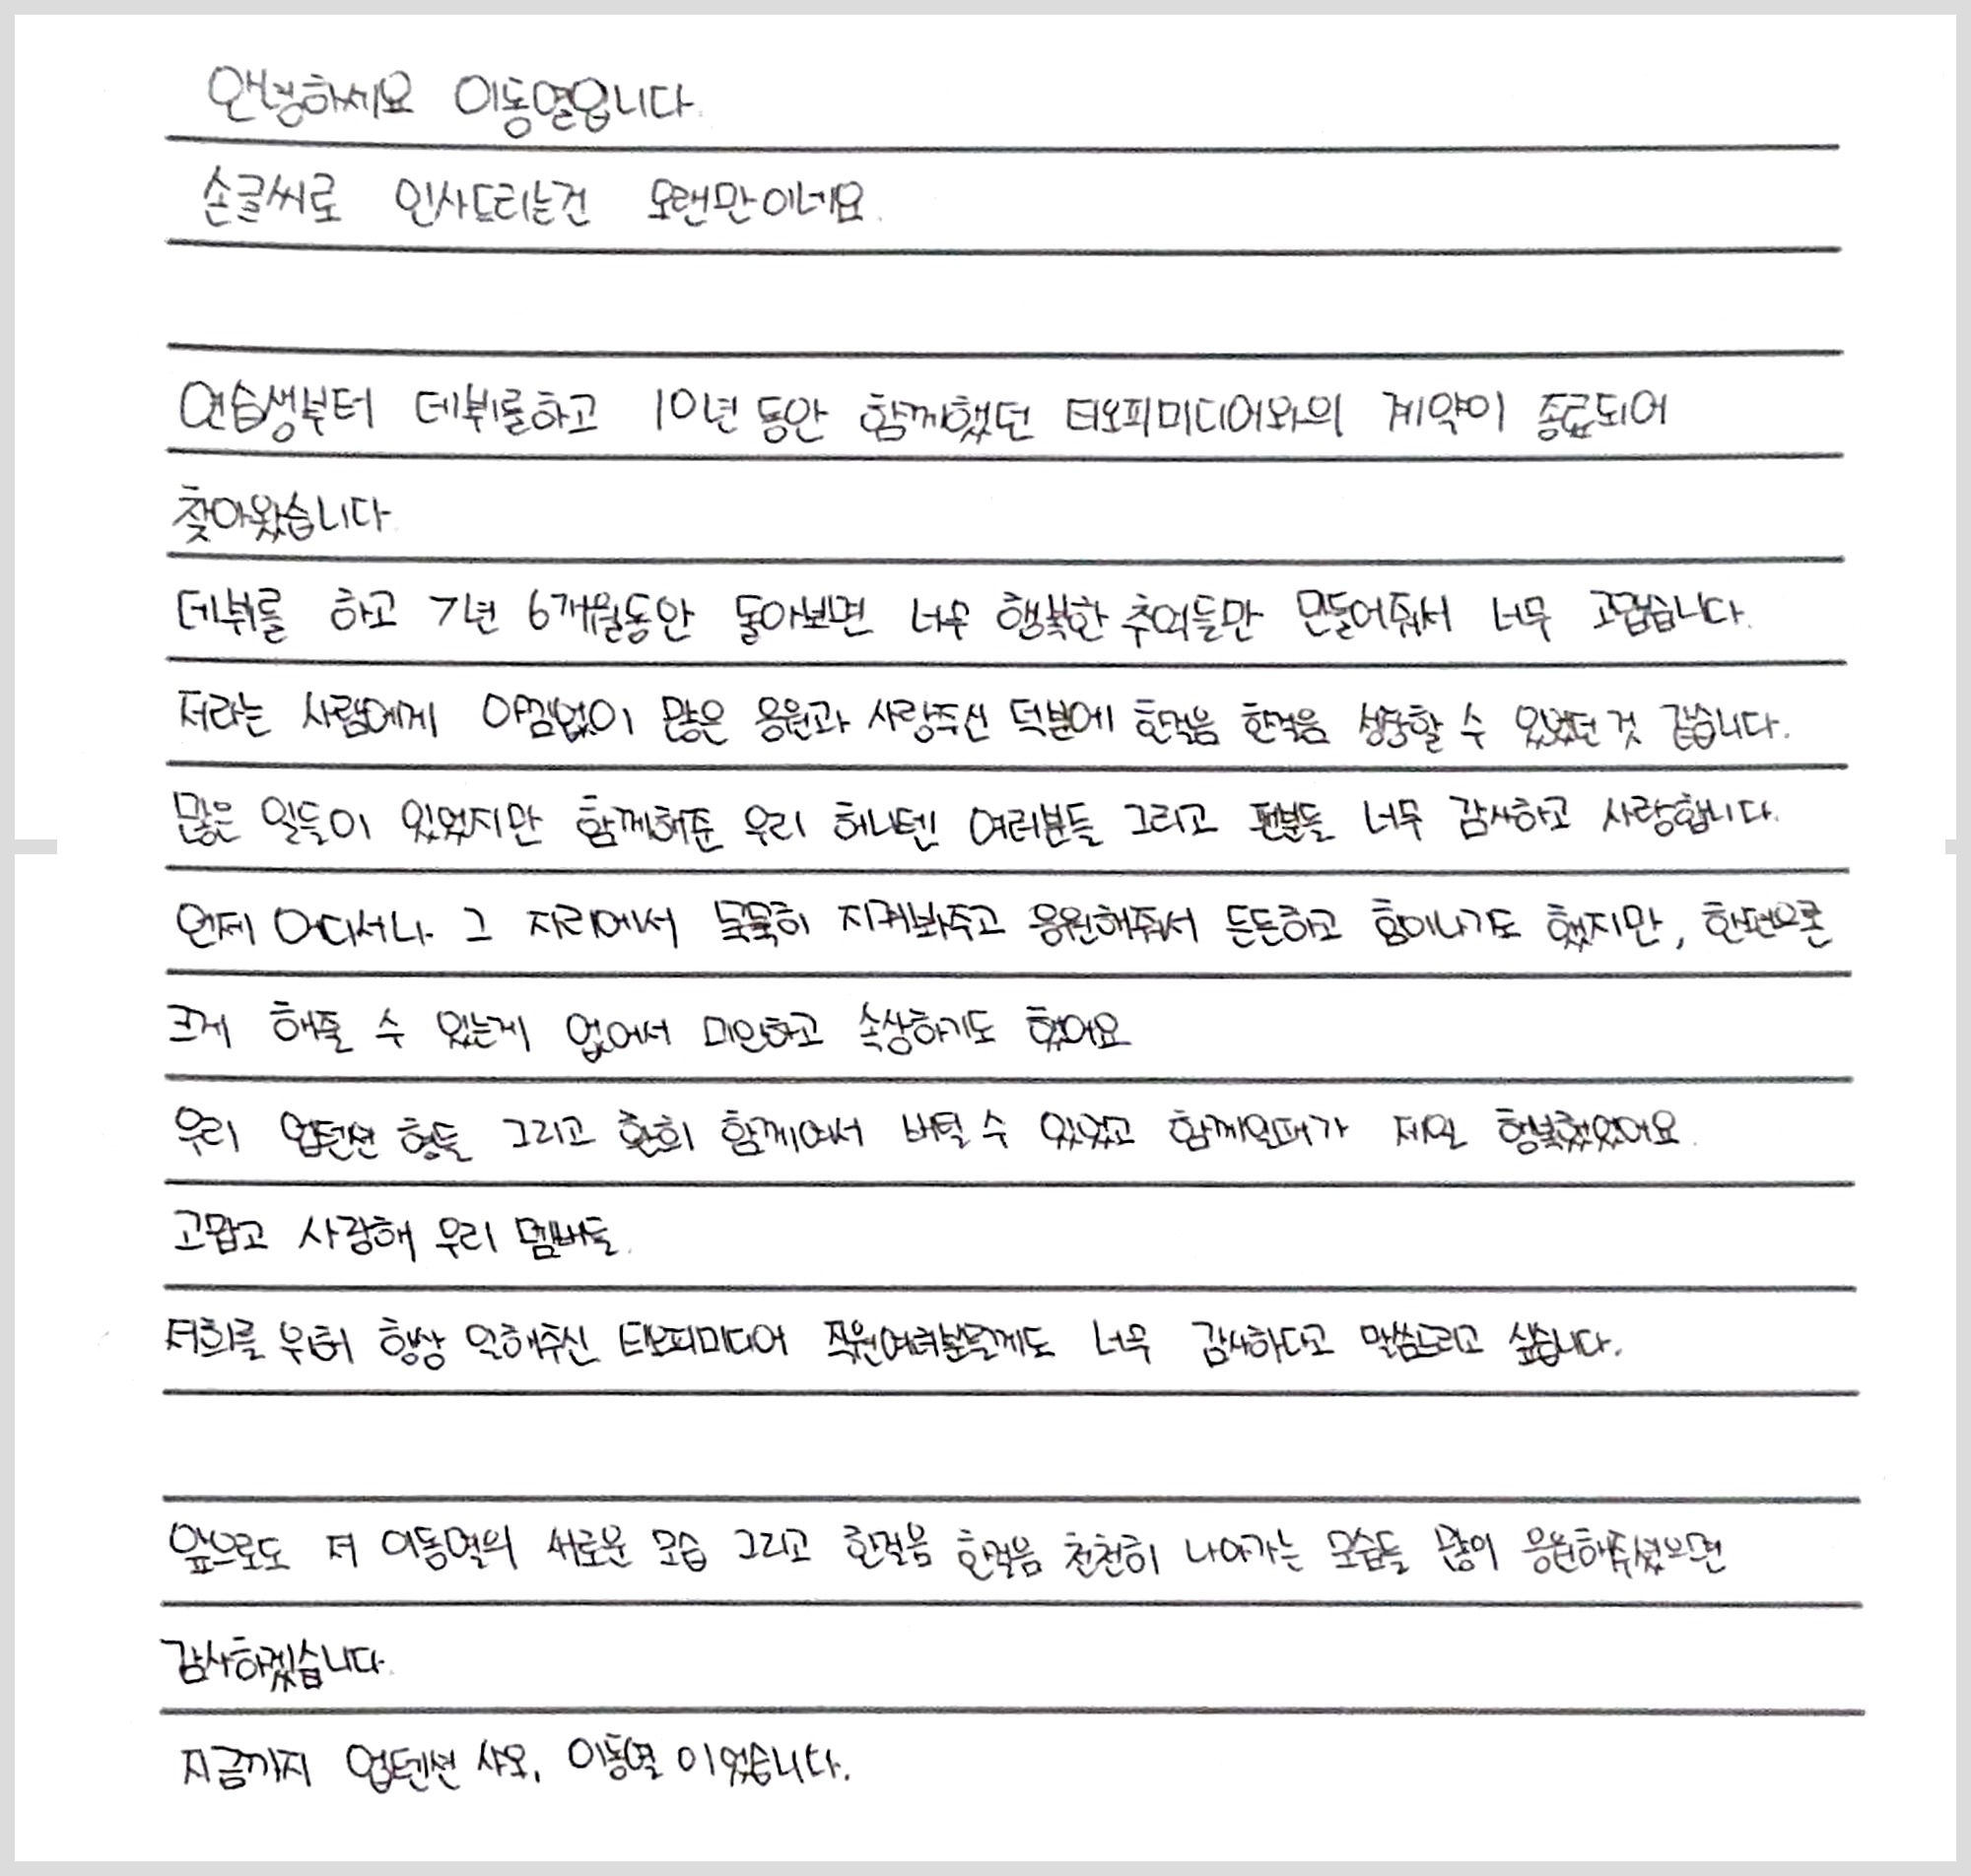 안녕하세요 이동열입니다.
손글씨로 인사드리는건 오랜만이네요.
연습생부터 데뷔를하고 10년 동안 함께했던 티오피미디어와의 계약이 종료되어
찾아왔습니다.
데뷔를 하고 7년 6개월동안 돌아보면 너무 행복한 추억들만 만들어줘서 너무 고맙습니다.
저라는 사람에게 아낌없이 많은 응원과 사랑주신 덕분에 한걸음 한걸음 성장할 수 있었던 것 같습니다.
많은 일들이 있었지만 함께해준 우리 허니텐 여러분들 그리고 팬분들 너무 감사하고 사랑합니다.
언제 어디서나 그 자리에서 묵묵히 지켜봐주고 응원해줘서 든든하고 힘이나기도 했지만, 한편으론
크게 해줄 수 있는게 없어서 미안하고 속상하기도 했어요
우리 업텐션 형들 그리고 환희 함께여서 버틸 수 있었고 함께일때가 제일 행복했었어요.
고맙고 사랑해 우리 멤버들.
저희를 위해 항상 일해주신 티오피미디어 직원여러분들께도 너무 감사하다고 말씀드리고 싶습니다.
앞으로도 저 이동열의 새로운 모습 그리고 한걸음 한걸음 천천히 나아가는 모습들 많이 응원해주셨으면
감사하겠습니다.
지금까지 업텐션 샤오, 이동열 이었습니다.